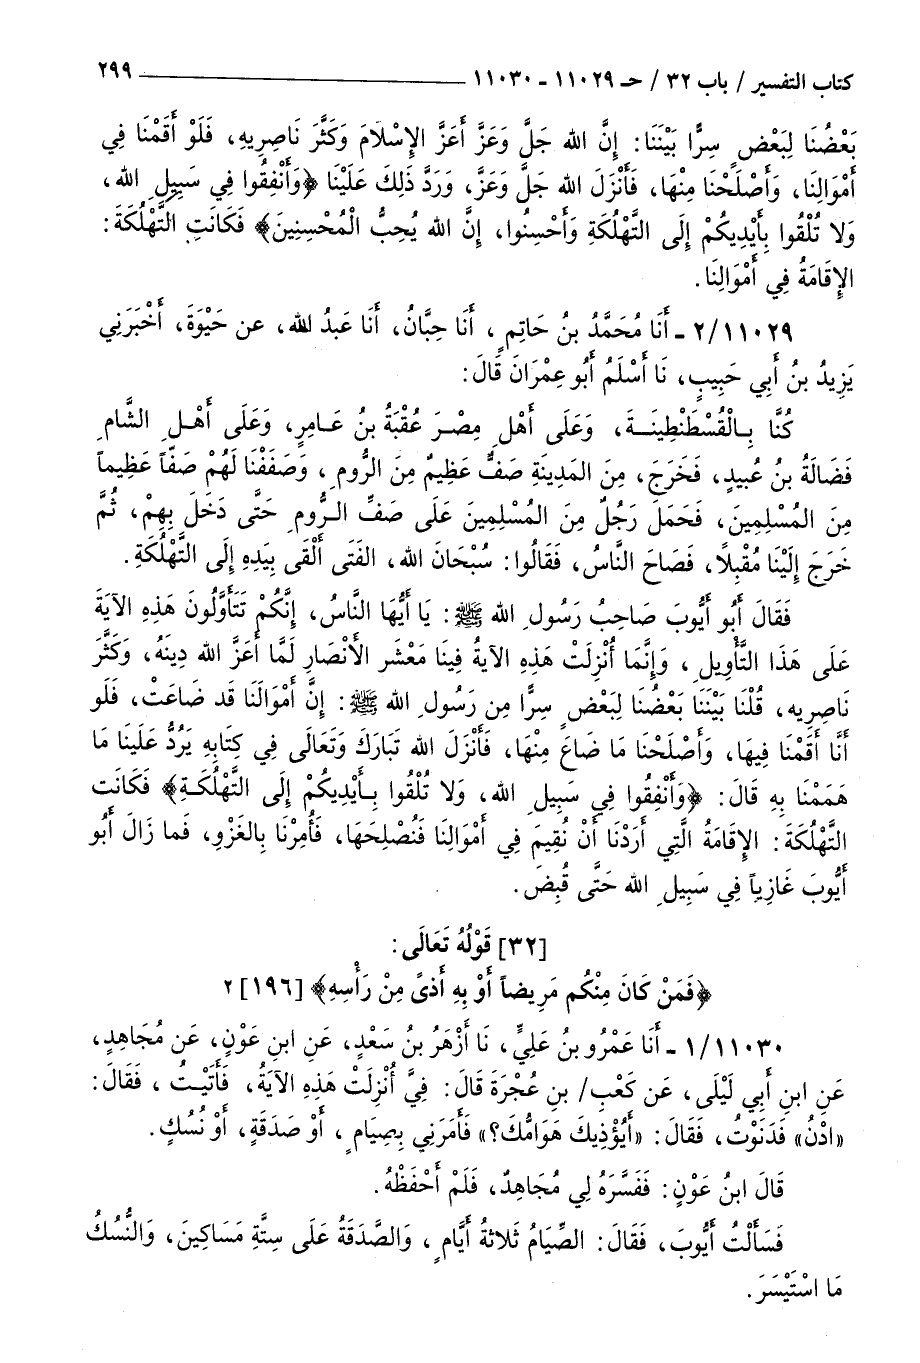 كتاب التفسير / باب ٣٢ / حـ ١١٠٢٩ - ١١٠٣٠ ٢٩٩
بَعْضُنَا لِبَعْضٍ سِرًّا بَيْنَنَا: إِنَّ الله جَلَّ وَعَزَّ أَعَزَّ الإِسْلَامَ وَكَثَّرَ نَاصِرِيهِ، فَلَوْ أَقَمْنَا فِي
أَمْوَالِنَا، وَأَصْلَحْنَا مِنْهَا، فَأَنْزَلَ الله جَلَّ وَعَزَّ، وَرَدَّ ذَلِكَ عَلَيْنَا ﴿وَأَنْفِقُوا فِي سَبِيلِ الله،
وَلا تُلْقُوا بِأَيْدِيكُمْ إِلَى التَّهْلُكَةِ وَأَحْسِنُوا، إِنَّ الله يُحِبُّ الْمُحْسِنِينَ﴾ فَكَانَتِ التَّهْلُكَةَ:
الإِقَامَةُ فِي أَمْوَالِنَا.
٢/١١٠٢٩ - أَنَا مُحَمَّدُ بنُ حَاتِمٍ، أَنَا حِبَّانُ، أَنَا عَبدُ الله، عن حَيْوَةَ، أَخْبَرَنِي
يَزِيدُ بنُ أَبِي حَبِيبٍ، نَا أَسْلَمُ أَبُو عِمْرَانَ قَالَ:
كُنَّا بِالْقُسْطَنْطِينَةِ، وَعَلَى أَهْلِ مِصْرَ عُقْبَةُ بنُ عَامِرٍ، وَعَلَى أَهْلِ الشَّامِ
فَضَالَةُ بنُ عُبيدٍ، فَخَرَجَ، مِنَ المَدِينَةِ صَفٌّ عَظِيمٌ مِنَ الرُّومِ، وَصَفَفْنَا لَهُمْ صَفّاً عَظِيماً
مِنَ المُسْلِمِينَ، فَحَمَلَ رَجُلٌ مِنَ المُسْلِمِينَ عَلَى صَفِّ الرُّومِ حَتَّى دَخَلَ بِهِمْ، ثُمَّ
خَرَجَ إِلَيْنَا مُقْبِلاً، فَصَاحَ النَّاسُ، فَقَالُوا: سُبْحَانَ الله، الفَتَى أَلْقَى بِيَدِهِ إِلَى التَّهْلُكَةِ.
فَقَالَ أَبُو أَيُّوبَ صَاحِبُ رَسُولِ الله ﷺ: يَا أَيُّهَا النَّاسُ، إِنَّكُمْ تَتَأَوَّلُونَ هَذِهِ الآيَةَ
عَلَى هَذَا التَّأْوِيلِ، وَإِنَّمَا أُنْزِلَتْ هَذِهِ الآيَةُ فِينَا مَعْشَر الأَنْصَارِ لَمَّا أَعَزَّ الله دِينَهُ، وَكَثَّرَ
نَاصِرِيه، قُلْنَا بَيْنَنَا بَعْضُنَا لِبَعْضٍ سِرًّا مِن رَسُولِ الله ﷺ: إِنَّ أَمْوَالَنَا قَد ضَاعَتْ، فَلَو
أَنَّا أَقَمْنَا فِيهَا، وَأَصْلَحْنَا مَا ضَاعَ مِنْهَا، فَأَنْزَلَ الله تَبَارَكَ وَتَعَالَى فِي كِتَابِهِ يَرُدُّ عَلَينَا مَا
هَمَمْنَا بِهِ قَالَ: ﴿وَأَنْفِقُوا فِي سَبِيلِ الله، وَلا تُلْقُوا بِأَيْدِيكُمْ إِلَى التَّهْلُكَةِ﴾ فَكَانَت
التَّهْلُكَةَ: الإِقَامَةُ الَّتِي أَرَدْنَا أَنْ نُقِيمَ فِي أَمْوَالِنَا فَنُصْلِحَهَا، فَأُمِرْنَا بِالغَزْوِ، فَما زَالَ أَبُو
أَيُّوبَ غَازِياً فِي سَبِيلِ الله حَتَّى قُبِضَ.
[٣٢] قَوْلُهُ تَعَالَى:
﴿فَمَنْ كَانَ مِنْكُم مَرِيضاً أَوْ بِهِ أَذىً مِنْ رَأْسِهِ﴾ [١٩٦] ٢
١/١١٠٣٠ - أَنَا عَمْرُو بنُ عَلِيٍّ، نَا أَزْهَرُ بنُ سَعْدٍ، عَنِ ابنِ عَوْنٍ، عَن مُجَاهِدٍ،
عَنِ ابنِ أَبِي لَيْلَى، عَن كَعْبِ/ بنِ عُجْرَةَ قَالَ: فِيَّ أُنْزِلَتْ هَذِهِ الآيَةُ، فَأَتَيْتُ، فَقَالَ:
«ادْنُ» فَدَنَوْتُ، فَقَالَ: «أَيُؤْذِيكَ هَوَامُّكَ؟» فَأَمَرَنِي بِصِيَامٍ، أَوْ صَدَقَةٍ، أَوْ نُسُكٍ.
قَالَ ابنُ عَوْنٍ: فَفَسَّرَهُ لِي مُجَاهِدٌ، فَلَمْ أَحْفَظْهُ.
فَسَأَلْتُ أَيُّوبَ، فَقَالَ: الصِّيَامُ ثَلاثةُ أَيَّامٍ، وَالصَّدَقَةُ عَلَى سِتَّةِ مَسَاكِينَ، وَالنُّسُكُ
مَا اسْتَيْسَرَ.